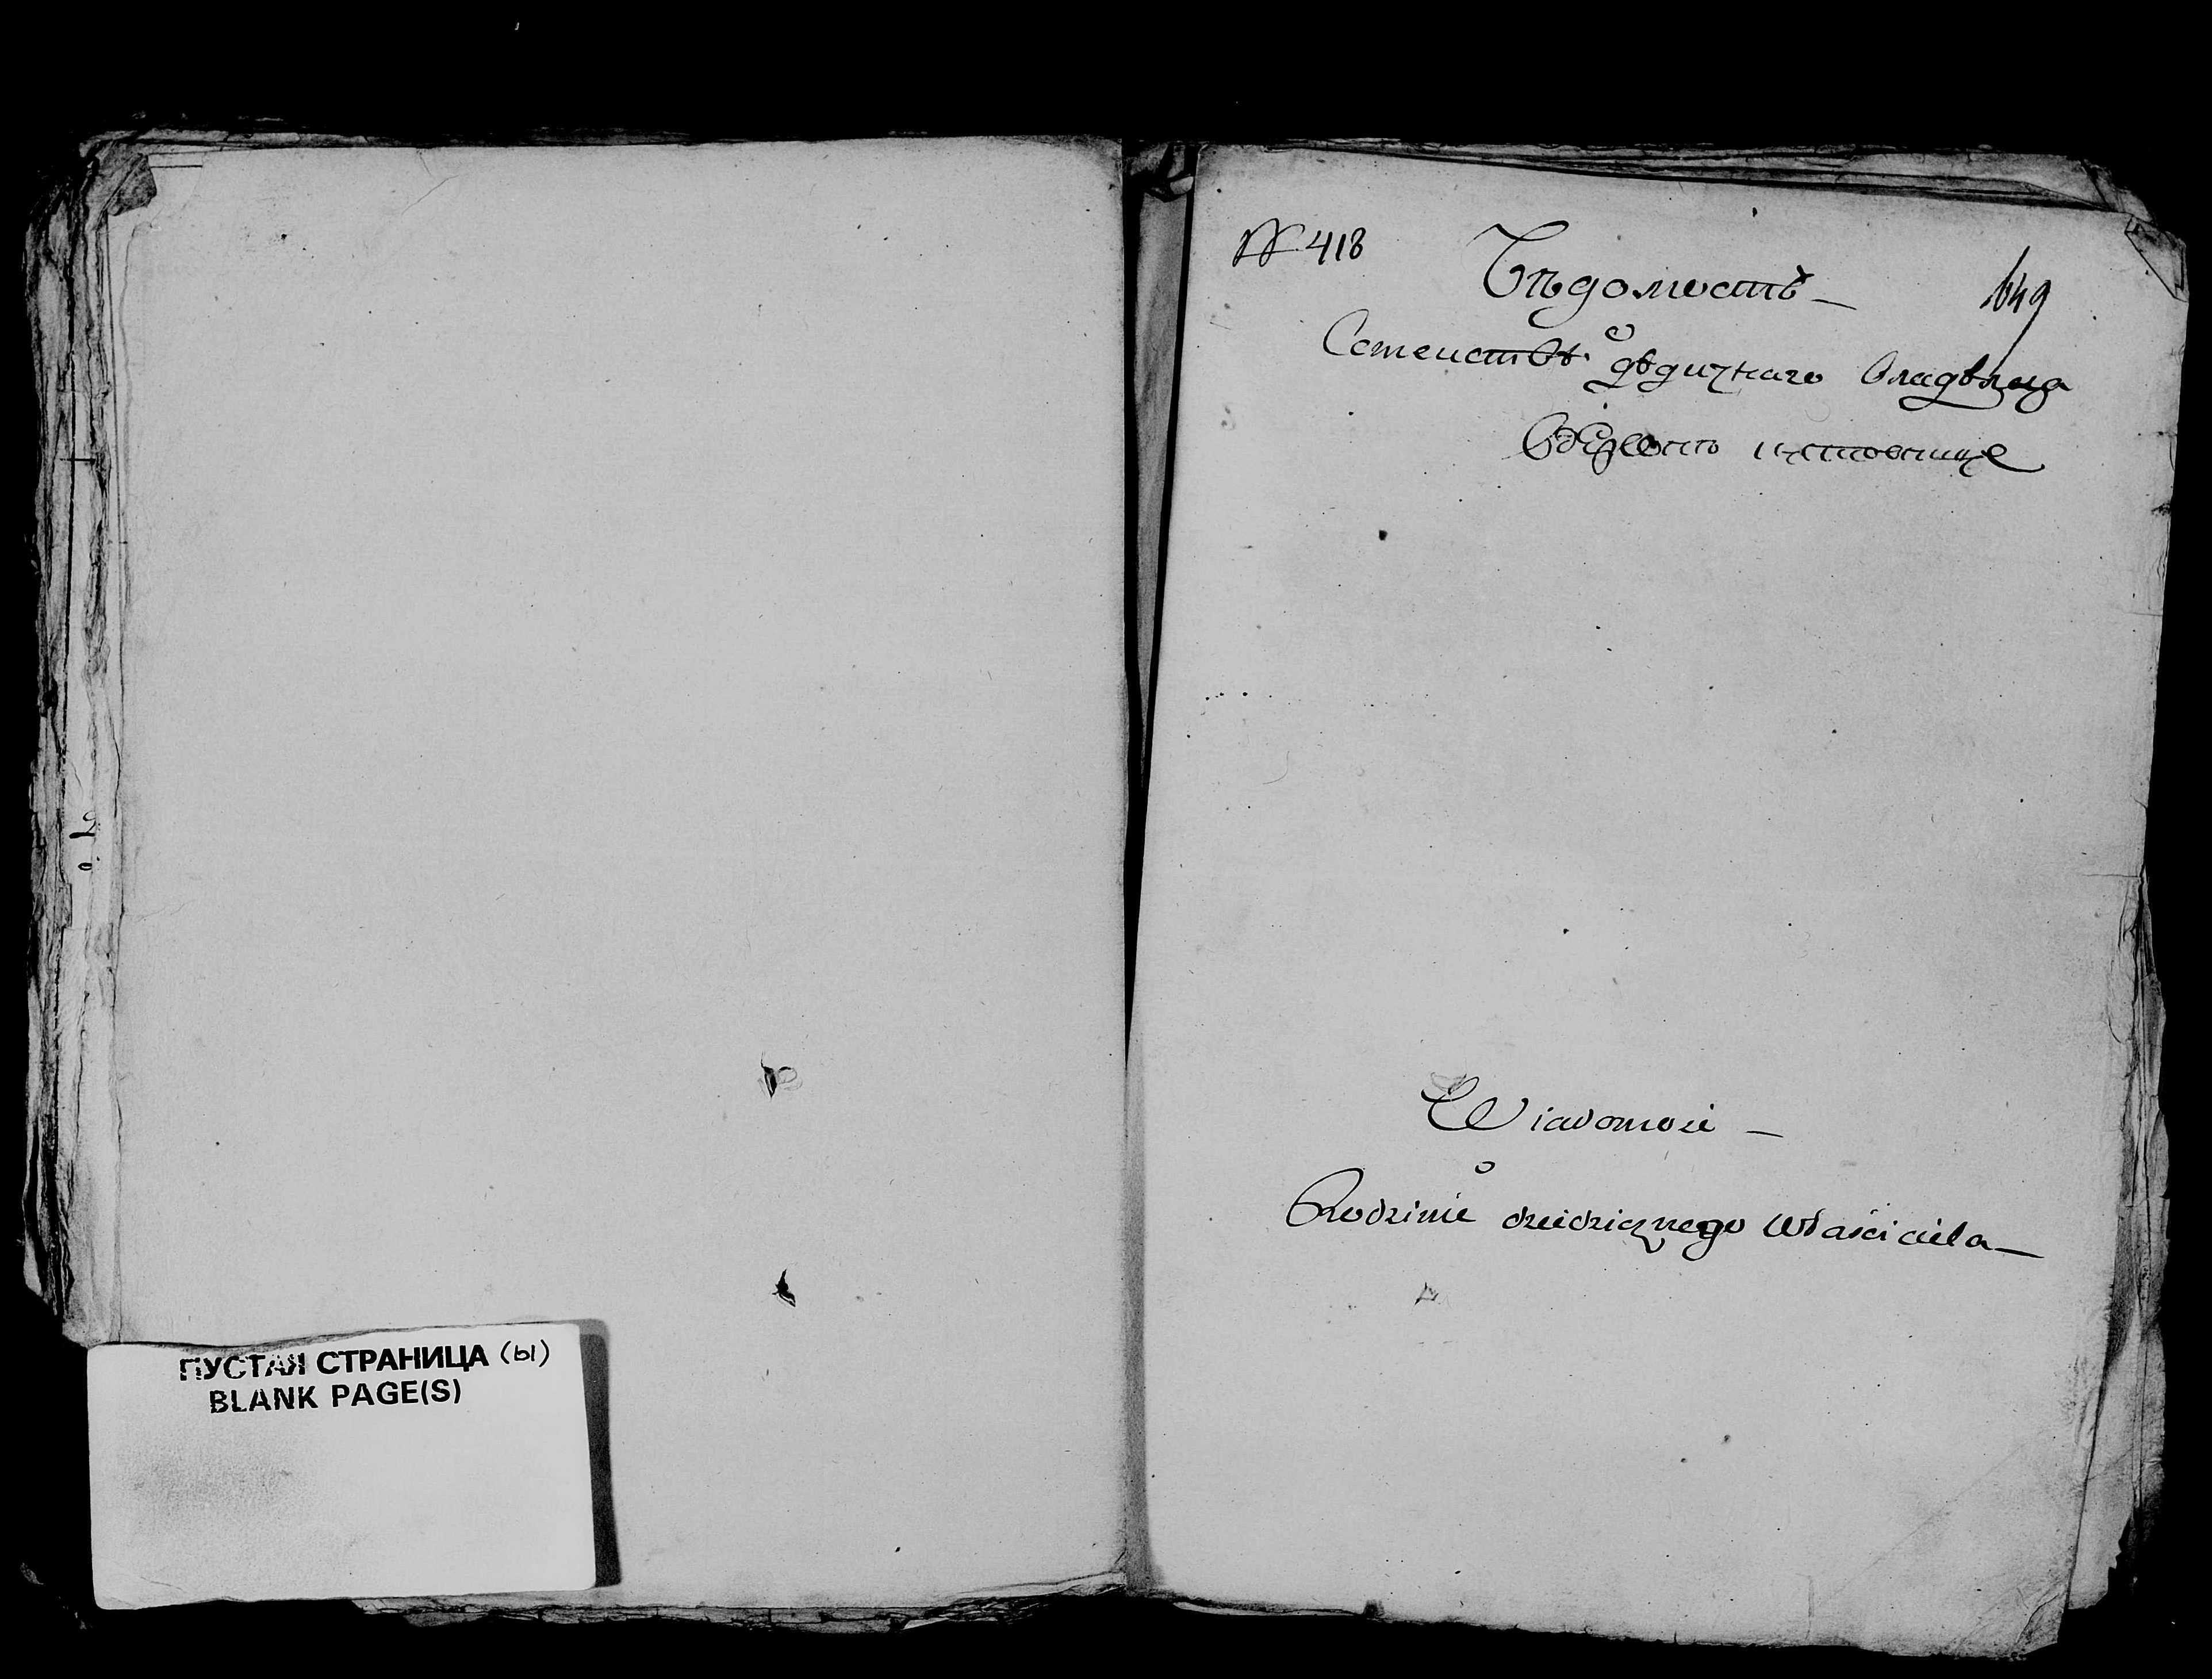 ПУСТАЯ СТРАНИЦА (ы)
BLANK PAGE(S)
№ 418
Вѣдомость
649
о
Семействѣ дѣдичнаго владѣльца
Wiadomość
o
Rodzinie dziedzicznego Właściciela